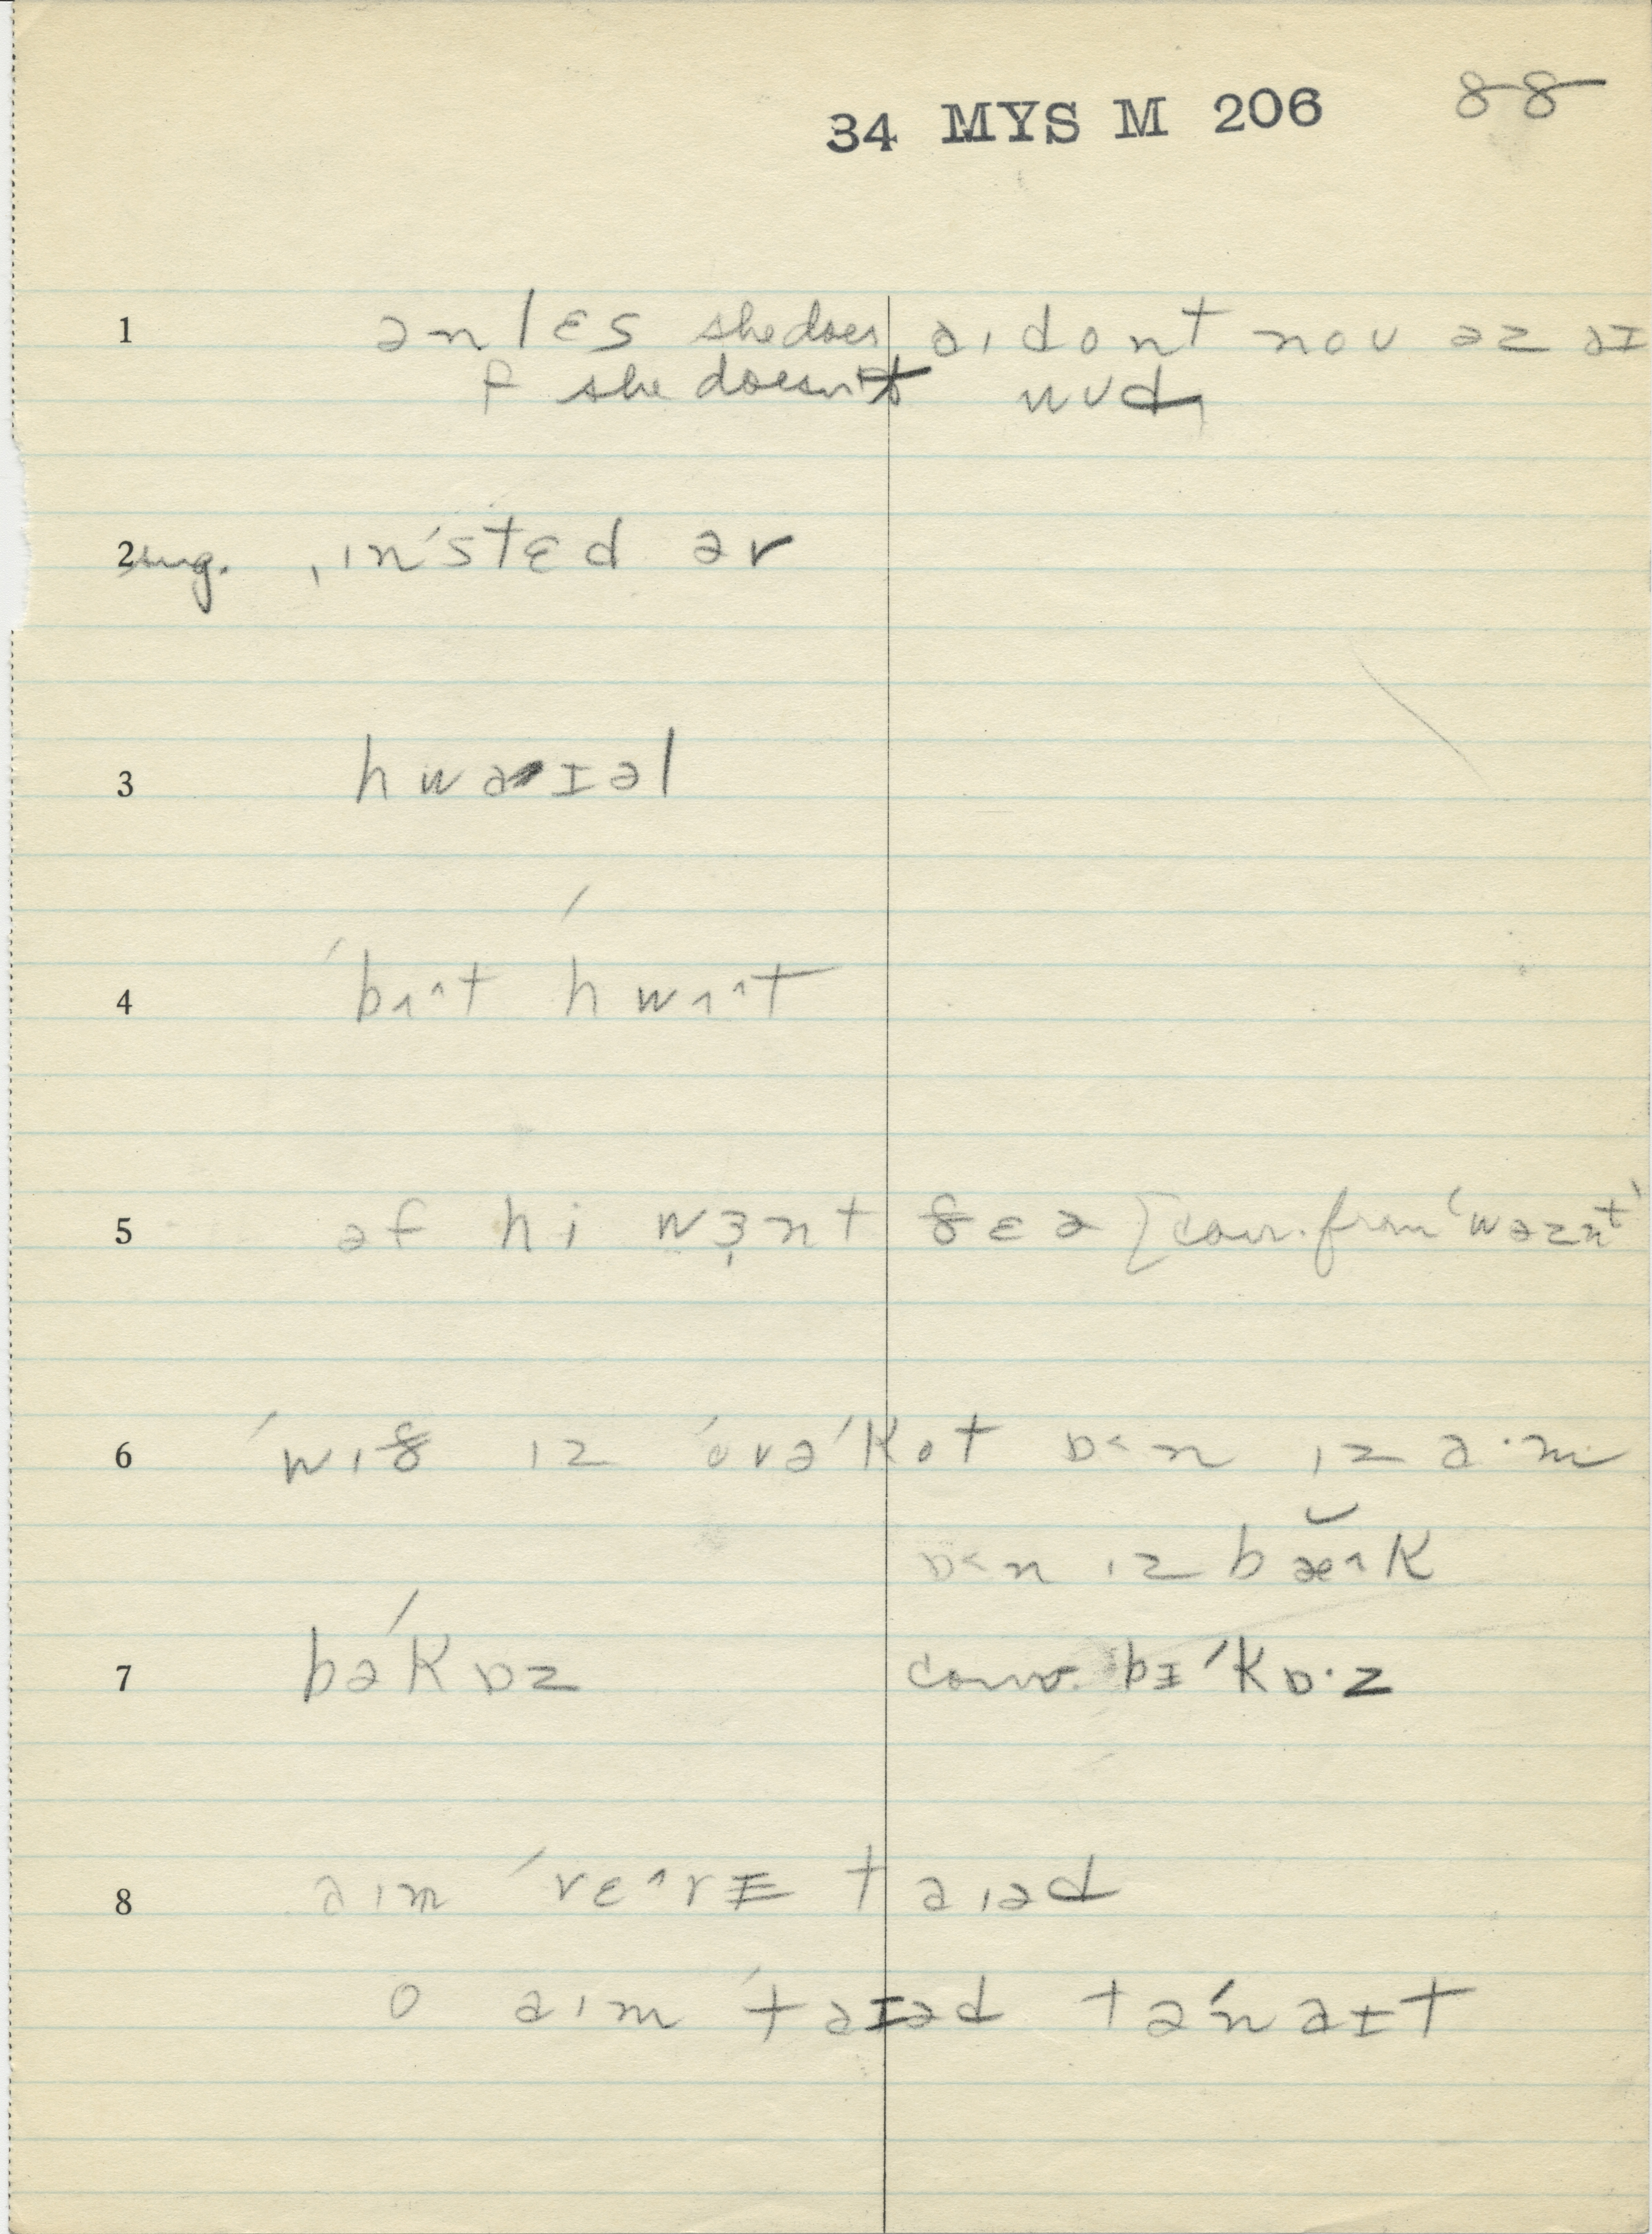 34 MYS M 206 88
1 ənlɛs she does aɪ dont noʊ əz aɪ
f she doesn't wʊd
2 sug. ɪn'stɛd əv
3 hwaɪəl
4 'bʌ^t hwʌ^t
5 əf hi wɜnt ðɛə [conv. from 'wəznt'
6 'wɪð ɪz 'ovə'kot ɒ<n ɪz a·m
ɒ<n ɪz bæ^k
7 bə'kɒz conv. bɪ'kɒ·z
8 aɪm 'vɛ^rɪ taɪəd
o aɪm 'taɪəd tə'naɪt